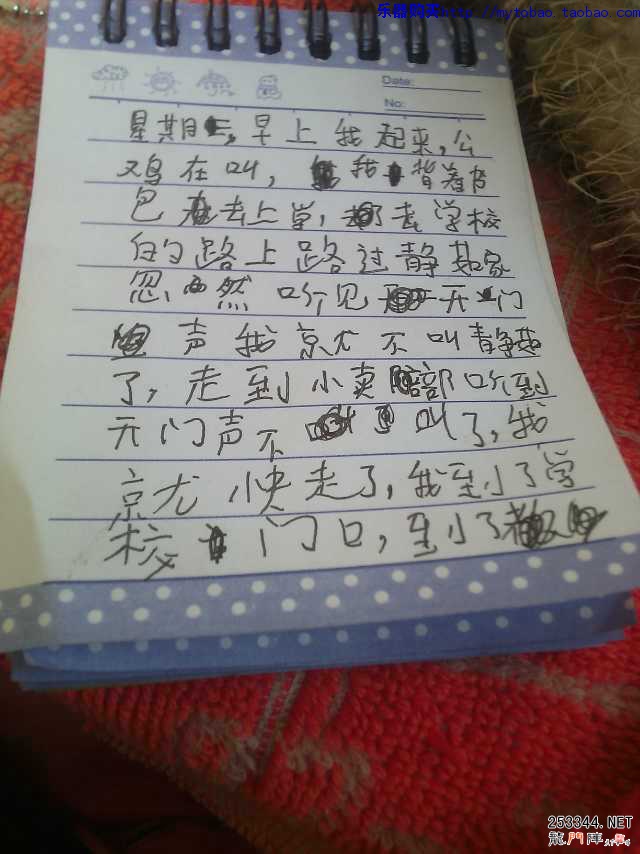 乐器购买http://mytobao.taobao.com
Date:
No:
星期五,早上我起来,公
鸡在叫,我背着书
包去上学,去学校
的路上路过静茹家
忽然听见开门
声我就不叫静茹
了,走到小卖部听到
开门声不叫了,我
就快走了,我到了学
校门口,到了
253344.NET
龍門陣